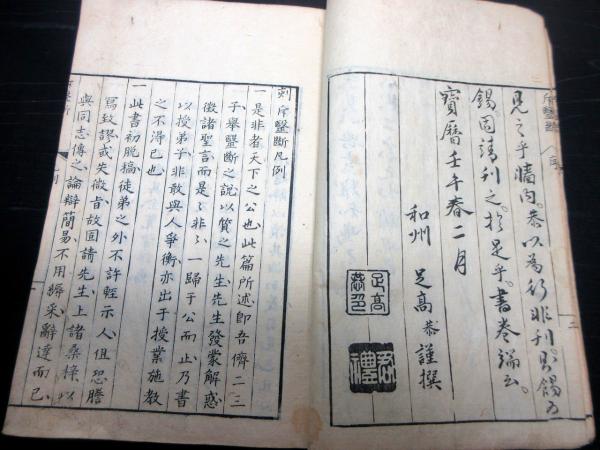 見之乎牆内。恭以為
錫。因請刊之。於是乎。書卷端云。
寶曆壬午春二月
和州 足高恭謹撰
刻斥醫斷凡例
一是非者天下之公也此篇所述即吾儕二三
子、舉醫斷之說以質之先生先生發蒙解惑
徵諸聖言而是々非々一歸于公而止乃書
以授弟子非敢與人爭衡亦出于授業施教
之不得已也
一此書初脫稿徒弟之外不許輕示人但恐謄
寫致謬或失微旨故固請先生上諸棗梓以
與同志傳之論辯簡易不用瓣采辭達而已